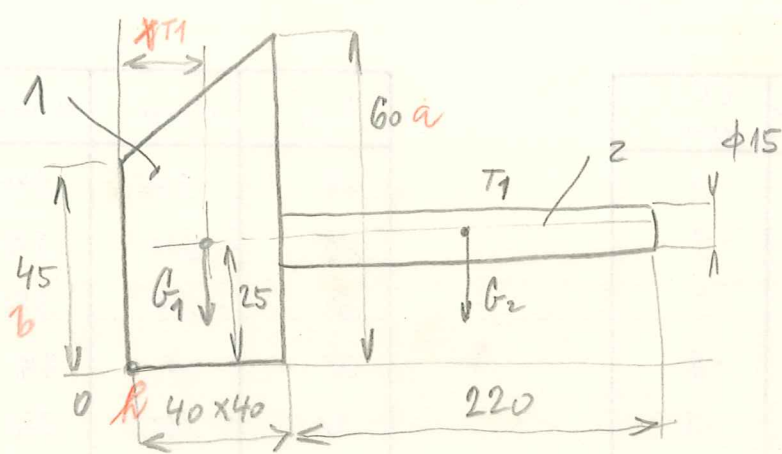 xT1
1
60 a
ϕ15
2
T1
45
b
G1
25
G2
0
h
40x40
220